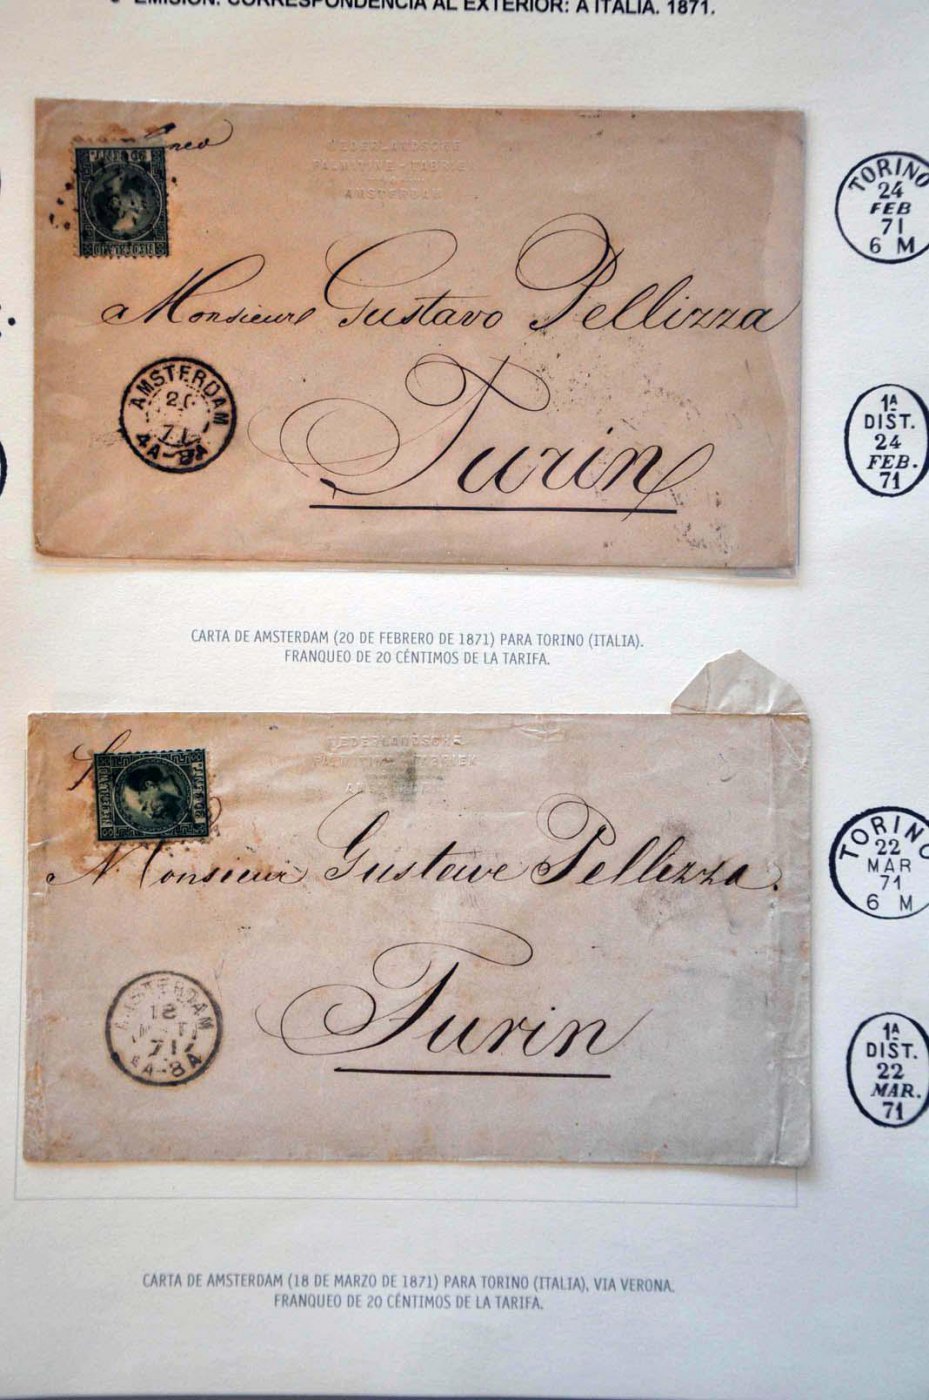 EMISIÓN. CORRESPONDENCIA AL EXTERIOR: A ITALIA. 1871.
NEDERLANDSCHE
PALMITINE-FABRIEK
AMSTERDAM
20 CENT
NEDERLAND
a Monsieur Gustavo Pellizza
Turin
AMSTERDAM
71
4A-8A
TORINO
24
FEB
71
6 M
1A
DIST.
24
FEB.
71
CARTA DE AMSTERDAM (20 DE FEBRERO DE 1871) PARA TORINO (ITALIA).
FRANQUEO DE 20 CÉNTIMOS DE LA TARIFA.
NEDERLANDSCHE
PALMITINE-FABRIEK
AMSTERDAM
NEDERLAND
20 CENT
Monsieur Gustave Pellizza.
Turin
AMSTERDAM
71
4A-8A
TORINO
22
MAR
71
6 M
1A
DIST.
22
MAR.
71
CARTA DE AMSTERDAM (18 DE MARZO DE 1871) PARA TORINO (ITALIA), VIA VERONA.
FRANQUEO DE 20 CÉNTIMOS DE LA TARIFA.